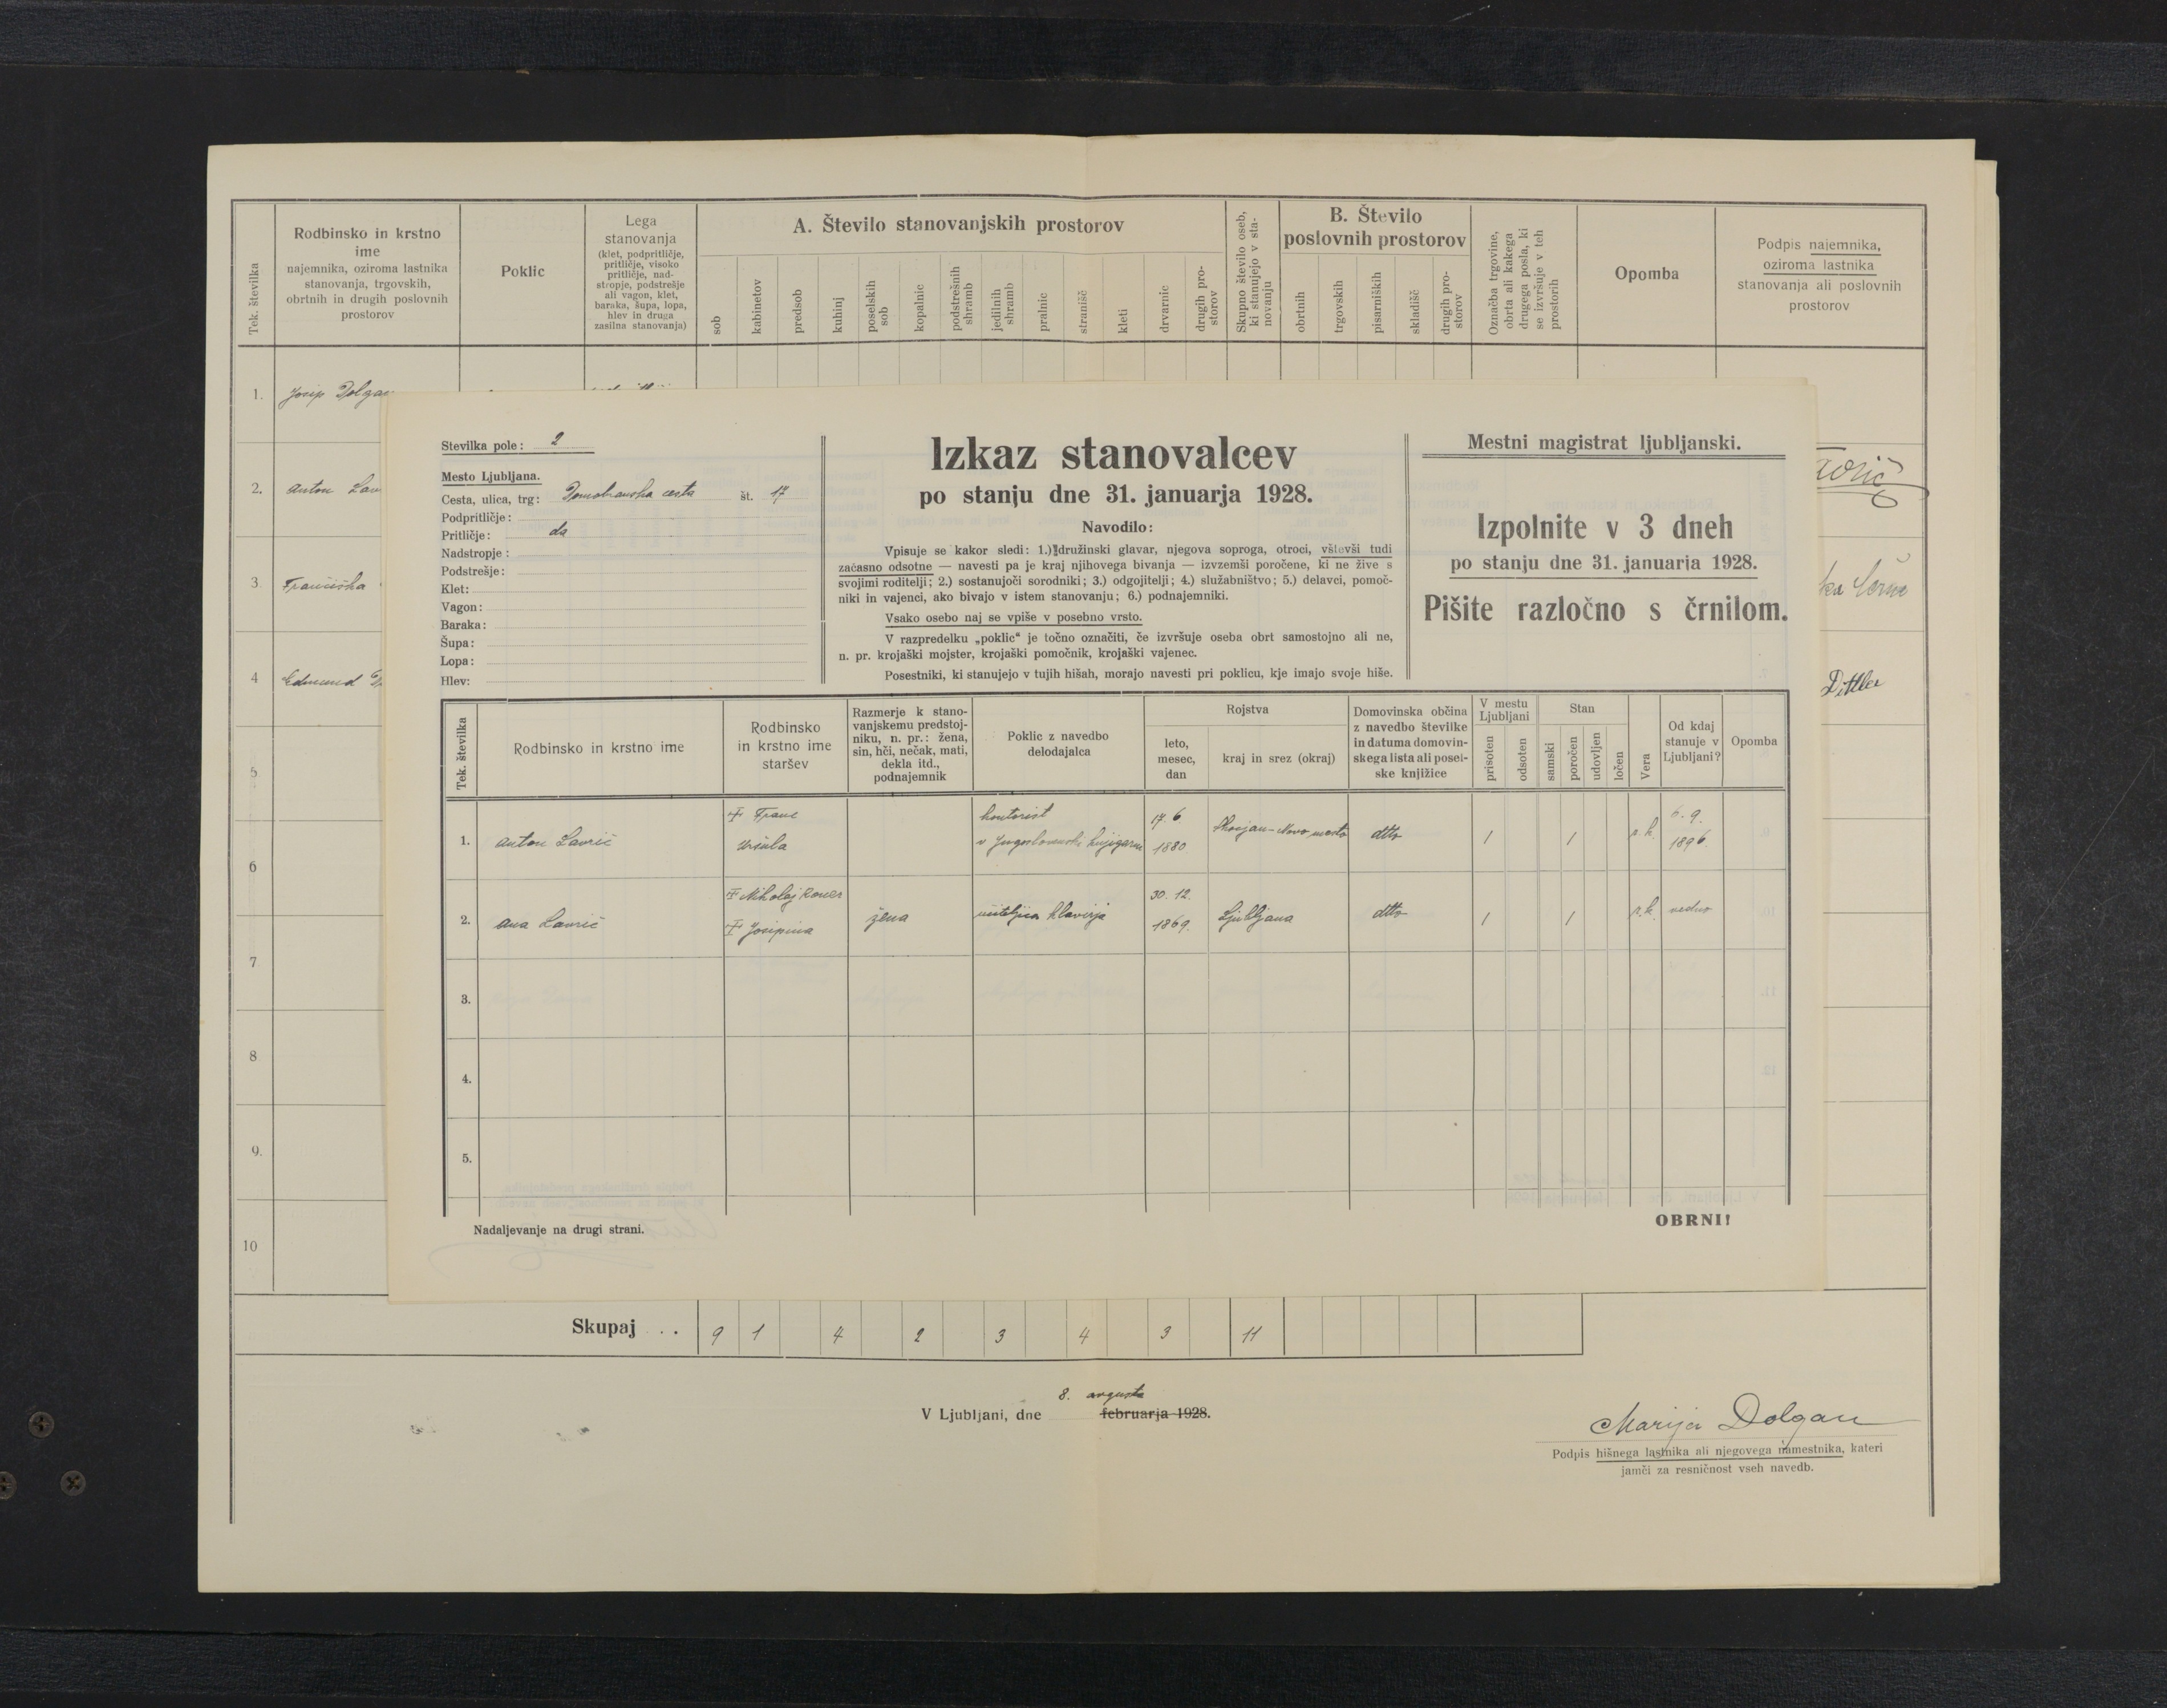 Tek. številka
Rodbinsko in krstno
ime
najemnika, oziroma lastnika
stanovanja, trgovskih,
obrtnih in drugih poslovnih
prostorov
Poklic
Lega
stanovanja
(klet, podpritličje,
pritličje, visoko
pritličje, nad-
stropje, podstrešje
ali vagon, klet,
baraka, šupa, lopa,
hlev in druga
zasilna stanovanja)
A. Število stanovanjskih prostorov
sob
kabinetov
predsob
kuhinj
poselskih
sob
kopalnic
podstrešnih
shramb
jedilnih
shramb
pralnic
stranišč
kleti
drvarnic
drugih pro-
storov
Skupno število oseb,
ki stanujejo v sta-
novanju
B. Število
poslovnih prostorov
obrtnih
trgovskih
pisarniških
skladišč
drugih pro-
storov
Označba trgovine,
obrta ali kakega
drugega posla, ki
se izvršuje v teh
prostorih
Opomba
Podpis najemnika,
oziroma lastnika
stanovanja ali poslovnih
prostorov
1. Josip Dolgan
2. Anton
3. Frančiška
4 Edmund
Dittler
5
6
7
8
9.
10
Številka pole: 2
Mesto Ljubljana.
Cesta, ulica, trg: Domobranska cesta št. 17
Podpritličje:
Pritličje: da
Nadstropje:
Podstrešje:
Klet:
Vagon:
Baraka:
Šupa:
Lopa:
Hlev:
Izkaz stanovalcev
po stanju dne 31. januarja 1928.
Navodilo:
Vpisuje se kakor sledi: 1.) družinski glavar, njegova soproga, otroci, vštevši tudi
začasno odsotne — navesti pa je kraj njihovega bivanja — izvzemši poročene, ki ne žive s
svojimi roditelji; 2.) sostanujoči sorodniki; 3.) odgojitelji; 4.) služabništvo; 5.) delavci, pomoč-
niki in vajenci, ako bivajo v istem stanovanju; 6.) podnajemniki.
Vsako osebo naj se vpiše v posebno vrsto.
V razpredelku „poklic“ je točno označiti, če izvršuje oseba obrt samostojno ali ne,
n. pr. krojaški mojster, krojaški pomočnik, krojaški vajenec.
Posestniki, ki stanujejo v tujih hišah, morajo navesti pri poklicu, kje imajo svoje hiše.
Mestni magistrat ljubljanski.
Izpolnite v 3 dneh
po stanju dne 31. januaria 1928.
Pišite razločno s črnilom.
Tek. številka
Rodbinsko in krstno ime
Rodbinsko
in krstno ime
staršev
Razmerje k stano-
vanjskemu predstoj-
niku, n. pr.: žena,
sin, hči, nečak, mati,
dekla itd.,
podnajemnik
Poklic z navedbo
delodajalca
Rojstva
leto,
mesec,
dan
kraj in srez (okraj)
Domovinska občina
z navedbo številke
in datuma domovin-
skega lista ali posel-
ske knjižice
V mestu
Ljubljani
prisoten
odsoten
Stan
samski
poročen
udovljen
ločen
Vera
Od kdaj
stanuje v
Ljubljani?
Opomba
1. Anton Lavrič
† Franc
Uršula
kontorist
v Jugoslovanski knjigarni
17. 6
1880
Škocjan-Novo mesto
dtto
1
1
r. k.
6. 9.
1896.
2. Ana Lavrič
† Nikolaj
† Josipina
žena
učiteljica klavirja
30. 12.
1869.
Ljubljana
dtto
1
1
r. k.
vedno
3.
4.
5.
Nadaljevanje na drugi strani.
OBRNI!
Skupaj . . . 9 1 4 2 3 4 3 11
V Ljubljani, dne 8. avgusta februarja 1928.
Marija Dolgan
Podpis hišnega lastnika ali njegovega namestnika, kateri
jamči za resničnost vseh navedb.